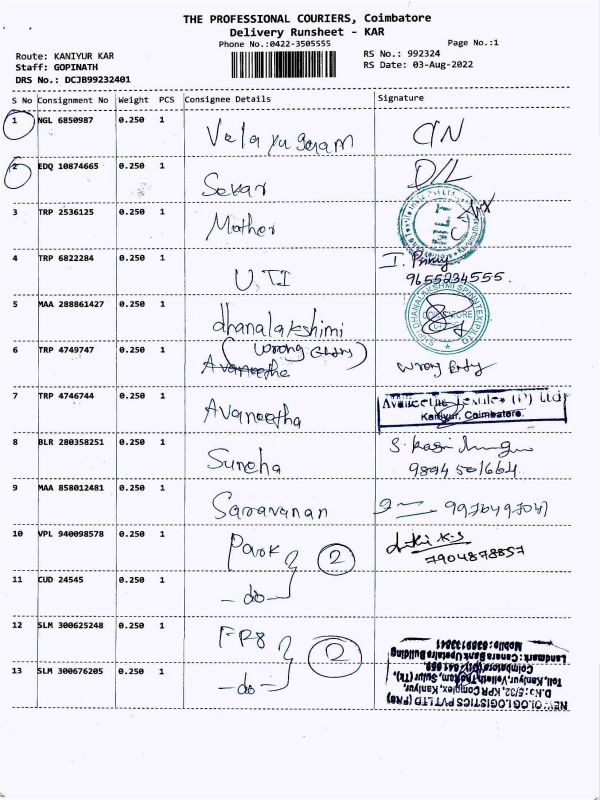 THE PROFESSIONAL COURIERS, Coimbatore
Delivery Runsheet - KAR
Phone No.:0422-3505555
Page No.:1
Route: KANIYUR KAR
Staff: GOPINATH
DRS No.: DCJB99232401
RS No.: 992324
RS Date: 03-Aug-2022
S No Consignment No Weight PCS Consignee Details Signature
1 NGL 6850987 0.250 1
2 EDQ 10874665 0.250 1 Sekar D/L
3 TRP 2536125 0.250 1 Mother
4 TRP 6822284 0.250 1 U.T.I 9655234555.
5 MAA 288861427 0.250 1 dhanalakshimi
6 TRP 4749747 0.250 1 (wrong Entry) wrong Entry
7 TRP 4746744 0.250 1 Avaneetha
Kaniyur, Coimbatore.
8 BLR 280358251 0.250 1 Suneha
9894501664
9 MAA 858012481 0.250 1 Saravanan
10 VPL 940098578 0.250 1 2
7904878857
11 CUD 24545 0.250 1 - do -
12 SLM 300625248 0.250 1 2
13 SLM 300676205 0.250 1 - do -
NEOLOGISTICS PVT LTD (FR8)
D.No:5/32, KPR Complex, Kaniyur,
Landmark: Canara Bank Upstairs Building